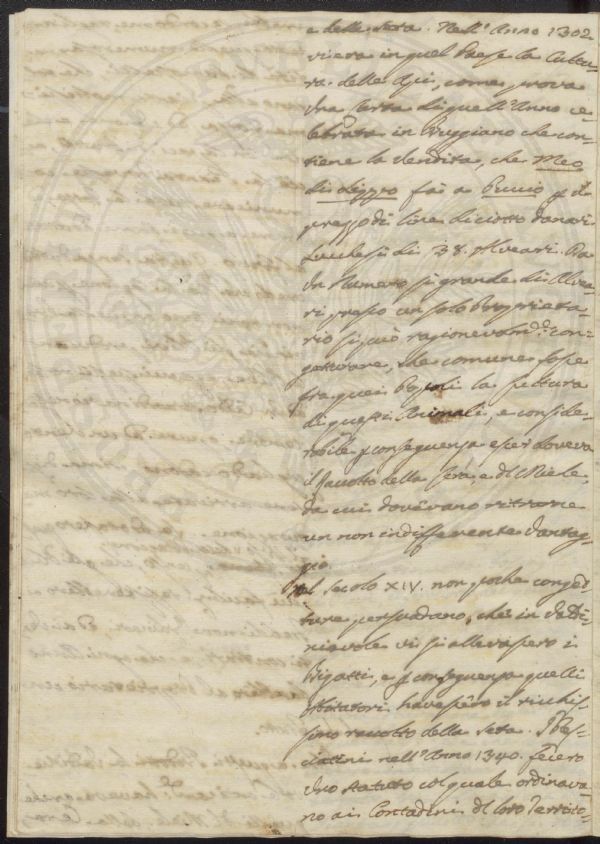 e della seta. Nell'Anno 1302
vi era in quel Paese la Cultu-
ra delle Api, come prova
una Carta di quell'Anno ce-
lebrata in Buggiano che con-
tiene la vendita, che Meo
di Lippo fài a Puccio p il
prezzo di lire diciotto danari
Lucchesi di 38. Alveari. Da
un Numero sì grande di Alvea-
ri presso un solo Proprieta-
rio si può ragionevolm.te con-
getturare, che comune fosse
fra quei Popoli la cultura
di questi Animali, e conside-
rabile p conseguenza esser doveva
il raccolto della Cera, e del Miele,
da cui dovevano ritrarre
un non indifferente vantag-
gio.
Nel secolo XIV. non poche conget-
ture persuadano, che in Valdi-
nievole vi si allevassero i
Bigatti, e p conseguenza quelli
Abitatori havessero il ricchis-
simo racolto della Seta. I Pes-
ciatini nell'Anno 1340. fecero
uno statuto col quale ordinava-
no ai Contadini del loro Territo-